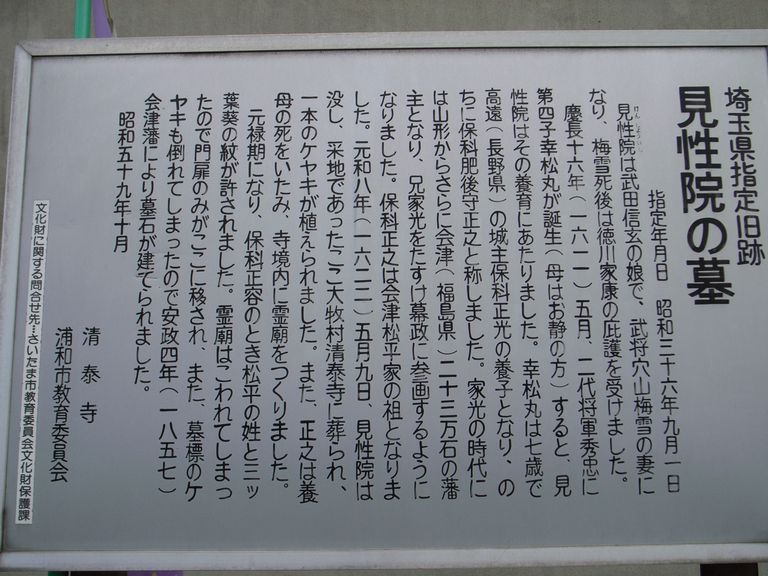 埼玉県指定旧跡
見性院の墓
指定年月日　昭和三十六年九月一日
けんしょういん
見性院は武田信玄の娘で、武将穴山梅雪の妻に
なり、梅雪死後は徳川家康の庇護を受けました。
慶長十六年（一六一一）五月、二代将軍秀忠に
第四子幸松丸が誕生（母はお静の方）すると、見
性院はその養育にあたりました。幸松丸は七歳で
高遠（長野県）の城主保科正光の養子となり、の
ちに保科肥後守正之と称しました。家光の時代に
は山形からさらに会津（福島県）二十三万石の藩
主となり、兄家光をたすけ幕政に参画するように
なりました。保科正之は会津松平家の祖となりま
した。元和八年（一六二二）五月九日、見性院は
没し、采地であったここ大牧村清泰寺に葬られ、
一本のケヤキが植えられました。また、正之は養
母の死をいたみ、寺境内に霊廟をつくりました。
元禄期になり、保科正容のとき松平の姓と三ッ
葉葵の紋が許されました。霊廟はこわれてしまっ
たので門扉のみがここに移され、また、墓標のケ
ヤキも倒れてしまったので安政四年（一八五七）
会津藩により墓石が建てられました。
昭和五十九年十月
清泰寺
浦和市教育委員会
文化財に関する問合せ先…さいたま市教育委員会文化財保護課